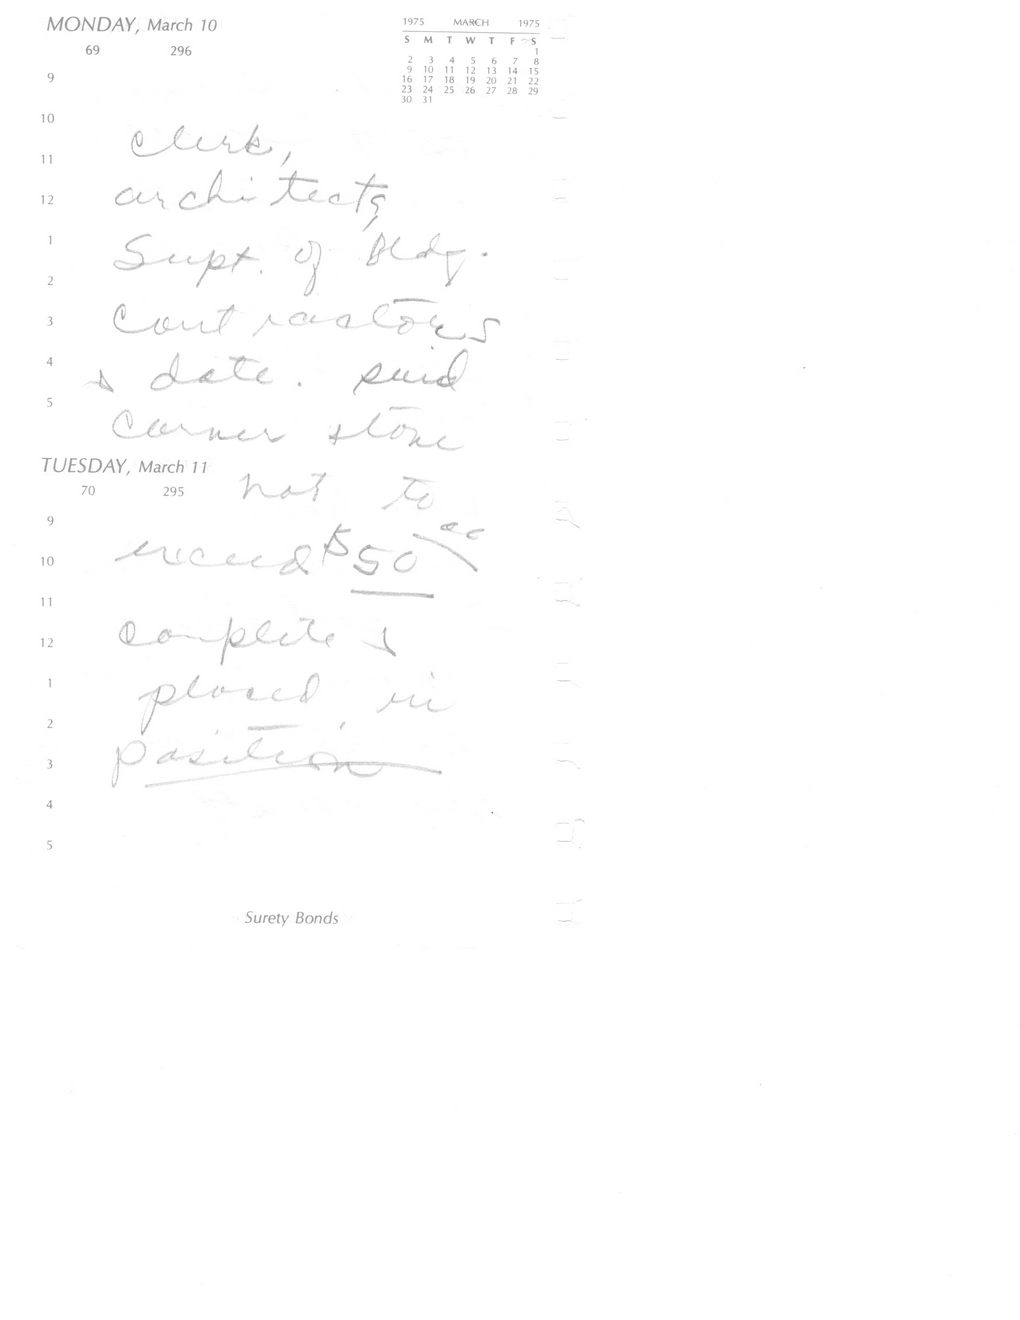 MONDAY, March 10
69 296
1975 MARCH 1975
S M T W T F S
1
2 3 4 5 6 7 8
9 10 11 12 13 14 15
16 17 18 19 20 21 22
23 24 25 26 27 28 29
30 31
9
10
Clerk,
11
12 architects,
1 Supt. of Bldg.
2
3 Contractors
4 & date. said
5 Corner stone
TUESDAY, March 11
70 295
not to
9
10 exceed $50 00
11
12 complete &
1 placed in
2
3 position
4
5
Surety Bonds